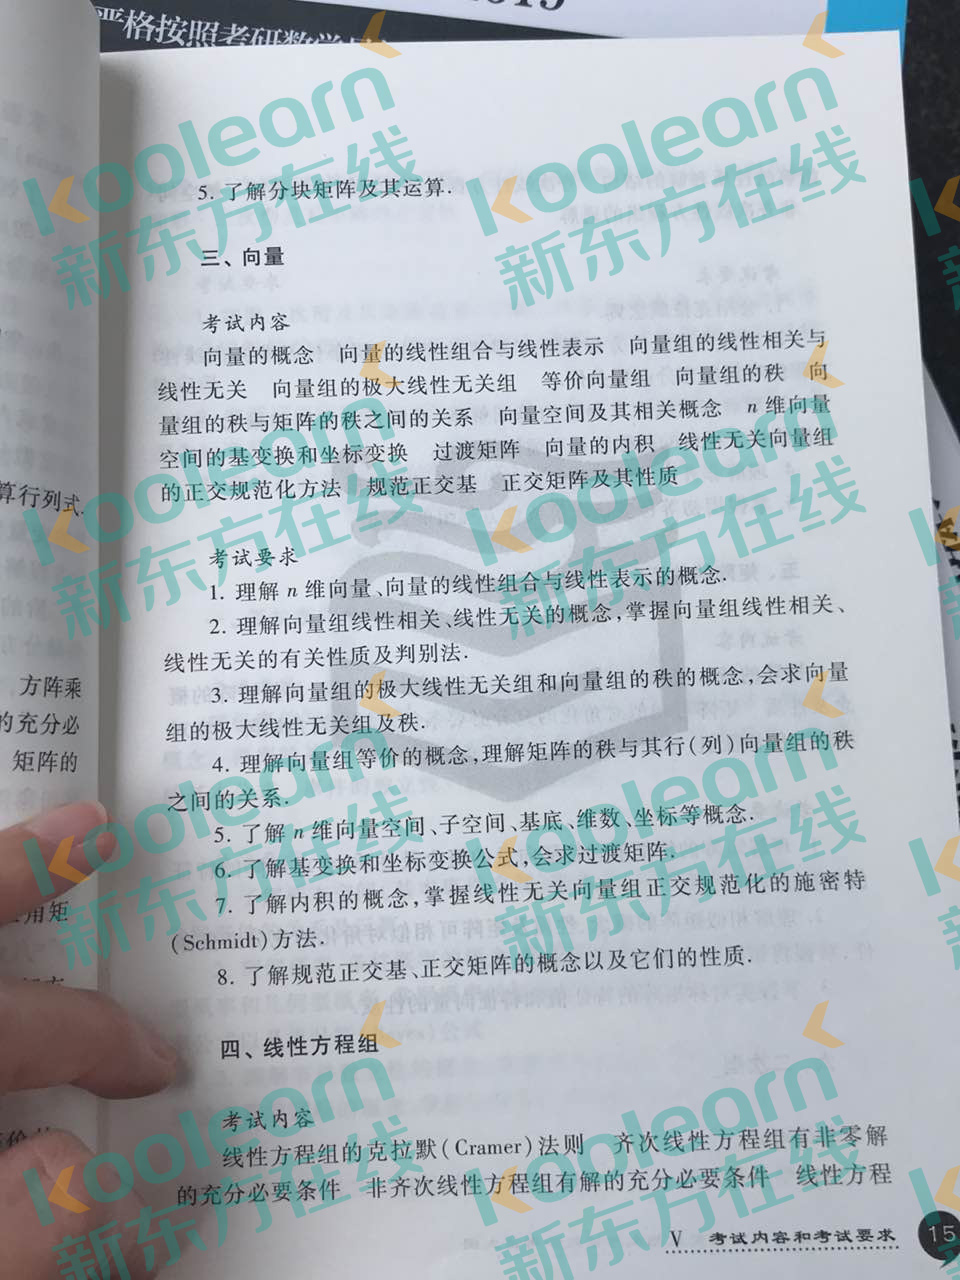 2019
严格按照考研数学
5. 了解分块矩阵及其运算.
三、向量
考试内容
向量的概念 向量的线性组合与线性表示 向量组的线性相关与
线性无关 向量组的极大线性无关组 等价向量组 向量组的秩 向
量组的秩与矩阵的秩之间的关系 向量空间及其相关概念 n 维向量
空间的基变换和坐标变换 过渡矩阵 向量的内积 线性无关向量组
的正交规范化方法 规范正交基 正交矩阵及其性质
考试要求
1. 理解 n 维向量、向量的线性组合与线性表示的概念.
2. 理解向量组线性相关、线性无关的概念,掌握向量组线性相关、
线性无关的有关性质及判别法.
3. 理解向量组的极大线性无关组和向量组的秩的概念,会求向量
组的极大线性无关组及秩.
4. 理解向量组等价的概念,理解矩阵的秩与其行(列)向量组的秩
之间的关系.
5. 了解 n 维向量空间、子空间、基底、维数、坐标等概念.
6. 了解基变换和坐标变换公式,会求过渡矩阵.
7. 了解内积的概念,掌握线性无关向量组正交规范化的施密特
(Schmidt)方法.
8. 了解规范正交基、正交矩阵的概念以及它们的性质.
四、线性方程组
考试内容
线性方程组的克拉默(Cramer)法则 齐次线性方程组有非零解
的充分必要条件 非齐次线性方程组有解的充分必要条件 线性方程
V 考试内容和考试要求 15
算行列式.
方阵乘
的充分必
矩阵的
角矩
koolearn
新东方在线
koolearn
新东方在线
koolearn
新东方在线
koolearn
新东方在线
koolearn
新东方在线
koolearn
新东方在线
koolearn
新东方在线
koolearn
新东方在线